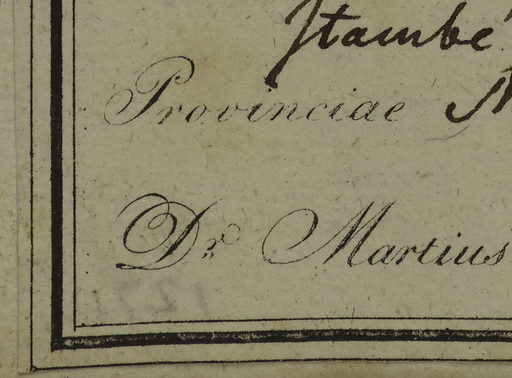 Itambe
Provinciae
Dr. Martius